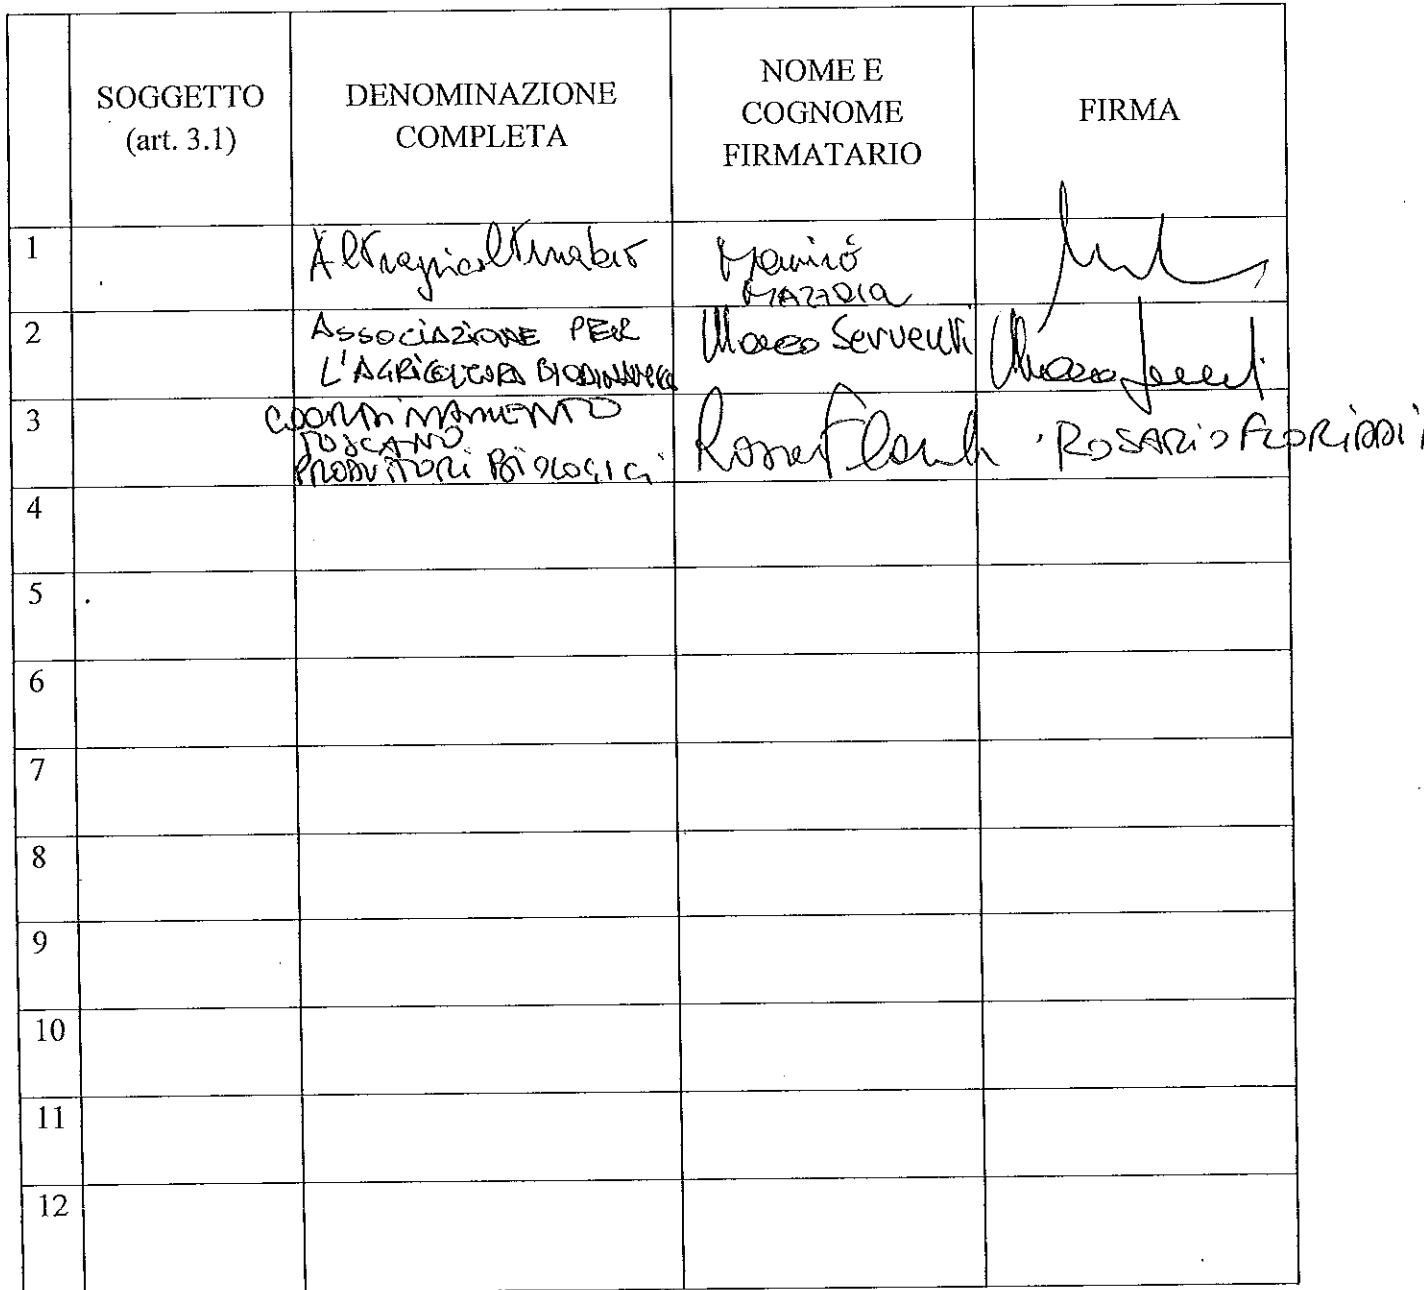 SOGGETTO
(art. 3.1)
DENOMINAZIONE
COMPLETA
NOME E
COGNOME
FIRMATARIO
FIRMA
1
Altragricolturabio
2
ASSOCIAZIONE PER
L'AGRICOLTURA BIODINAMICA
Marco Serventi
3
COORDINAMENTO
TOSCANO
PRODUTTORI BIOLOGICI
ROSARIO FLORIDDIA
4
5
6
7
8
9
10
11
12